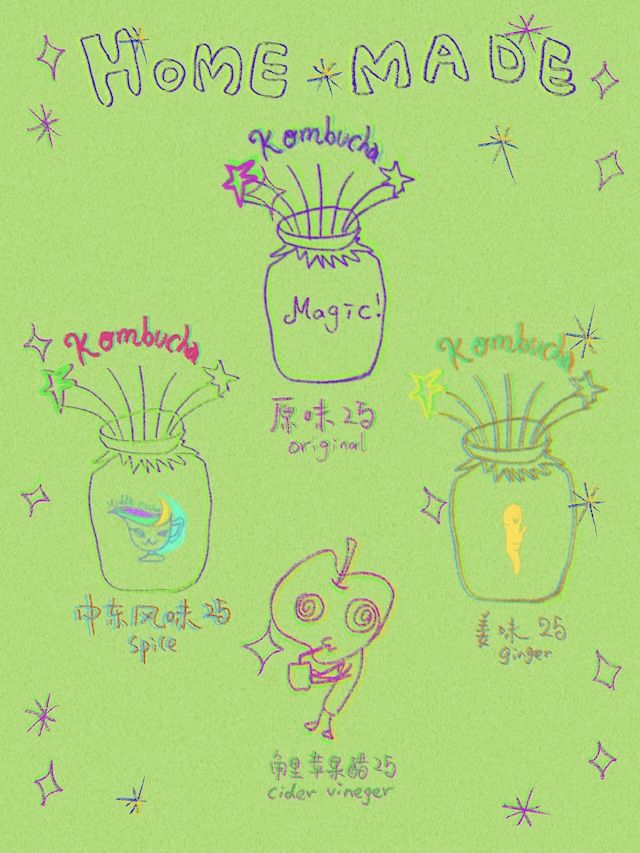 HOME MADE
Kombucha
Magic!
原味 25
original
Kombucha
中东风味 25
spice
Kombucha
姜味 25
ginger
苹果醋 25
cider vineger